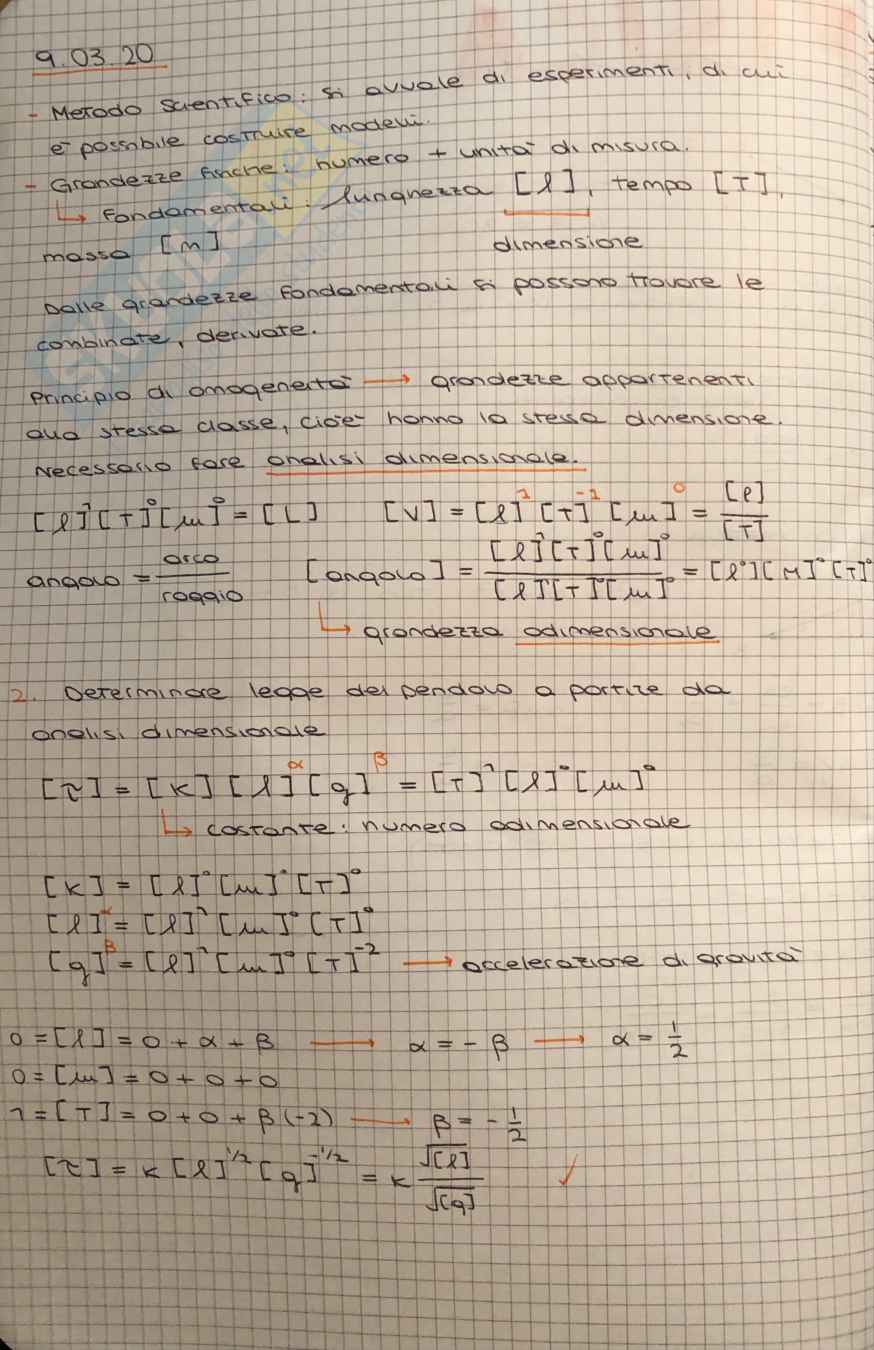 9.03.20
- Metodo scientifico: si avvale di esperimenti, di cui
è possibile costruire modelli.
- Grandezze fisiche: numero + unità di misura.
↳ Fondamentali: lunghezza [l], tempo [T],
massa [m] dimensione
Dalle grandezze fondamentali si possono trovare le
combinate, derivate.
Principio di omogeneità → grandezze appartenenti
alla stessa classe, cioè hanno la stessa dimensione.
Necessario fare analisi dimensionale.
[l]¹[T]⁰[m]⁰ = [L] [V] = [l]¹ [T]⁻¹ [m]⁰ = [l]/[T]
angolo = arco/raggio [angolo] = [l]¹[T]⁰[m]⁰/[l]¹[T]⁰[m]⁰ = [l⁰][M]⁰[T]⁰
↳ grandezza adimensionale
2. Determinare legge del pendolo a partire da
analisi dimensionale
[τ] = [K] [l]^α [g]^β = [T]¹ [l]⁰ [m]⁰
↳ costante: numero adimensionale
[K] = [l]⁰ [m]⁰ [T]⁰
[l]^α = [l]¹ [m]⁰ [T]⁰
[g]^β = [l]¹ [m]⁰ [T]⁻² → accelerazione di gravità
0 = [l] = 0 + α + β → α = - β → α = 1/2
0 = [m] = 0 + 0 + 0
1 = [T] = 0 + 0 + β (-2) → β = - 1/2
[τ] = K [l]^1/2 [g]^-1/2 = K √[l]/√[g] ✓